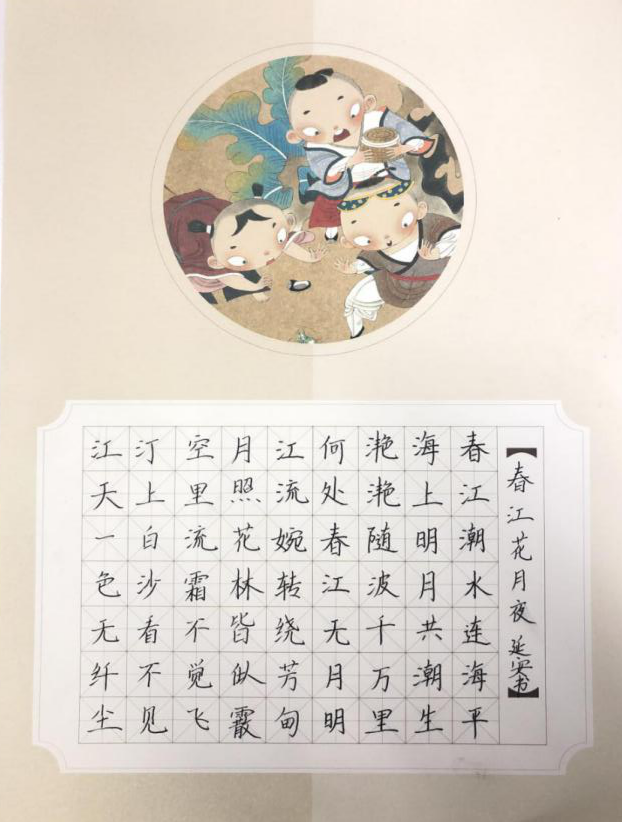 【春江花月夜 延实书】
春江潮水连海平
海上明月共潮生
滟滟随波千万里
何处春江无月明
江流婉转绕芳甸
月照花林皆似霰
空里流霜不觉飞
汀上白沙看不见
江天一色无纤尘